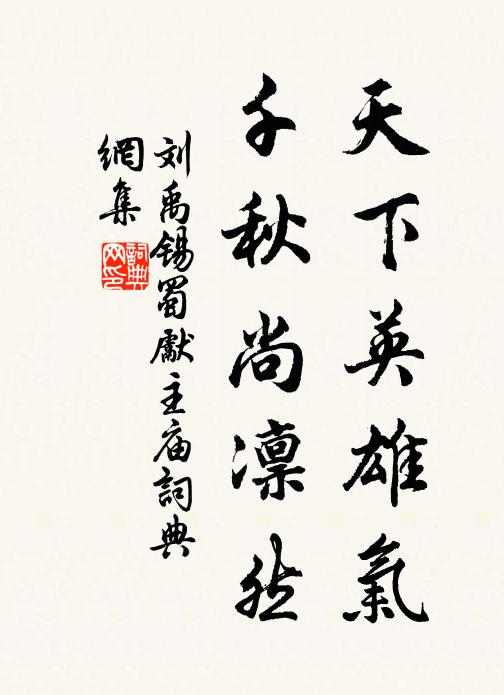 天下英雄氣
千秋尚凛然
刘禹锡蜀獻主庙詞典
網集
詞典網印